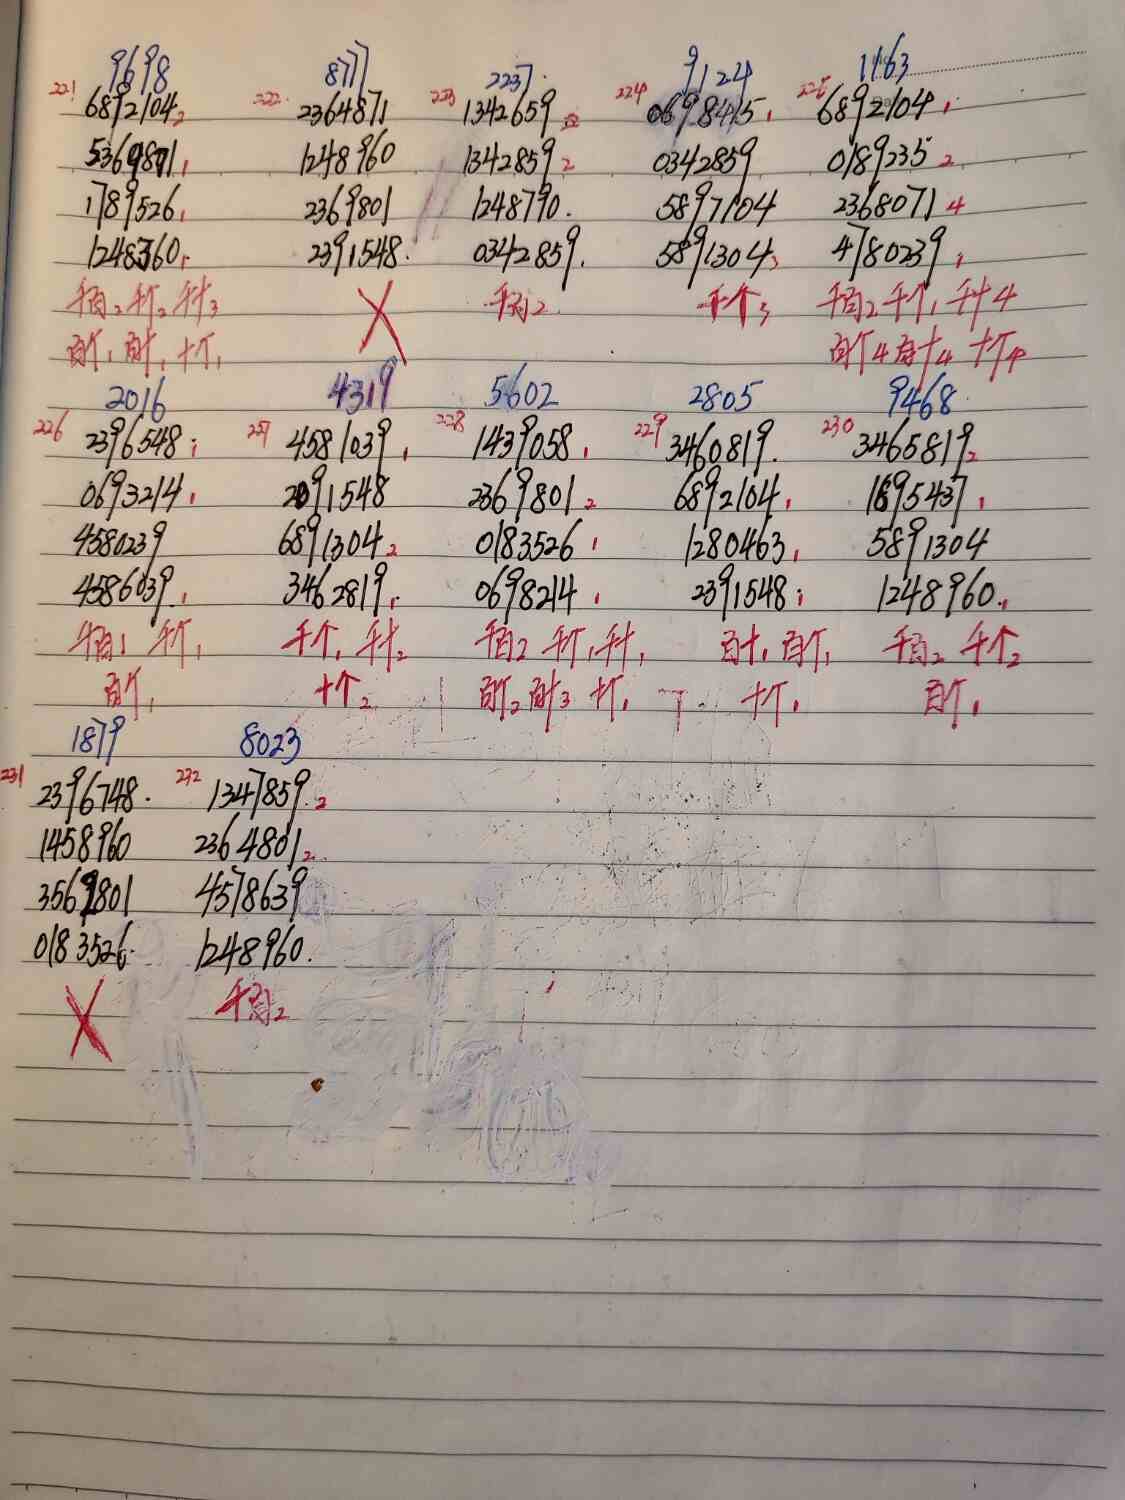 9698 8777 2237. 9124 1163
221 6892104 2 222. 2364871 223 1342659 224 0698415 1 225 6892104 1
5369871 1 1248960 1342859 2 0342859 0189235 2
1789526 1 2369801 1248790. 5897104 2368071 4
1248360 1 2391548. 0342859. 5891304 3 4780239 1
千百2 千个2 千十3 X 千百2 千个3 千百2 千个1 千十4
百个1 百十1 十个1 百个4 百十4 十个4
2016 4319 5602 2805 9468
226 2396548 1 227 4581039 1 228 1439058 1 229 3460819. 230 3465819 2
0693214 1 2091548 2369801 2 6892104 1 1695437 1
4580239 6891304 2 0183526 1 1280463 1 5891304
4586039 1 3462819 1 0698214 1 2391548 1 1248960 1
千百1 千个1 千个1 千十2 千百2 千个1 千十1 百十1 百个1 千百2 千个2
百个1 十个2 百个2 百十3 十个1 十个1 百个1
1879 8023
231 2396748. 232 1347859 2
1458960 2364801 2
3569801 4578639
0183526. 1248960.
X 千百2